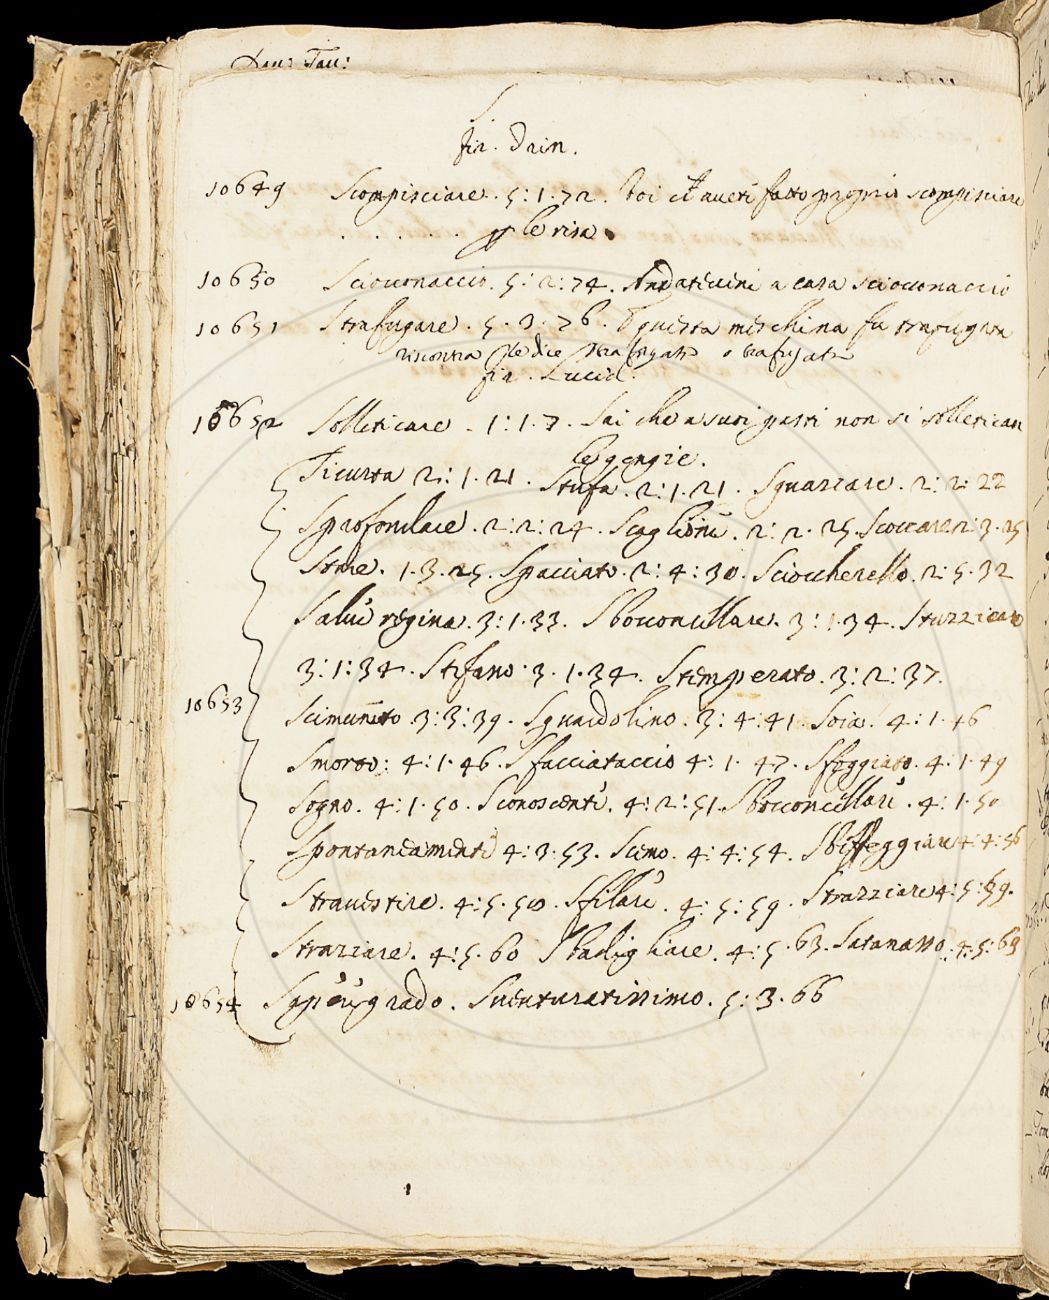 Dav: Tav:
S
fir. Drin.
10649 Scompisciare. 5:1.72. Voi ci aveti fatto proprio scompisciare
. . . . . p le risa.
10650 Scioccionaccio. 5:2:74. Andatevini a casa scioccionaccio
10651 Strafugare. 5.3.76. questa meschina fu trafugata
riscontra se dice trafugati o trafugati
fir. Lucid.
10652 Solleticare. 1:1.7. Sai che a suri gusti non si solletican
le gengie.
Sicurta 2:1.21. Stufa. 2:1.21. Squarzare. 2:2:22
Sprofondare. 2:2:24. Scaglioni. 2:2.25. Scoccare. 2:3.25
Stare. 1.3.25. Spacciato. 2:4:30. Sciocherello. 2:5.32
Salve regina. 3:1.33. Sbocconcellare. 3:1.34. Stuzzicare
3:1:34. Stefano. 3.1.34. Stemperato. 3:2:37.
10653 Scimunito 3:3:39. Sguardolino. 3:4:41. Soia. 4:1.46
Smorto: 4:1.46. Sfacciataccio 4:1.47. Sfoggiato. 4.1.49
Sogno. 4:1.50. Sconoscenti. 4:2:51. Sbocconcellari. 4:1.50
Spontaneamenti 4:3.53. Scemo. 4:4:54. Sbeffeggiare 4:4:56
Stravestire. 4:5.58. Sfilari. 4:5:59. Strazziare 4:5:59.
Strazzare. 4:5.60 Sbadigliare. 4:5.63. Satanasso. 4:5:63
10654 Sventuratissimo. 5:3.66